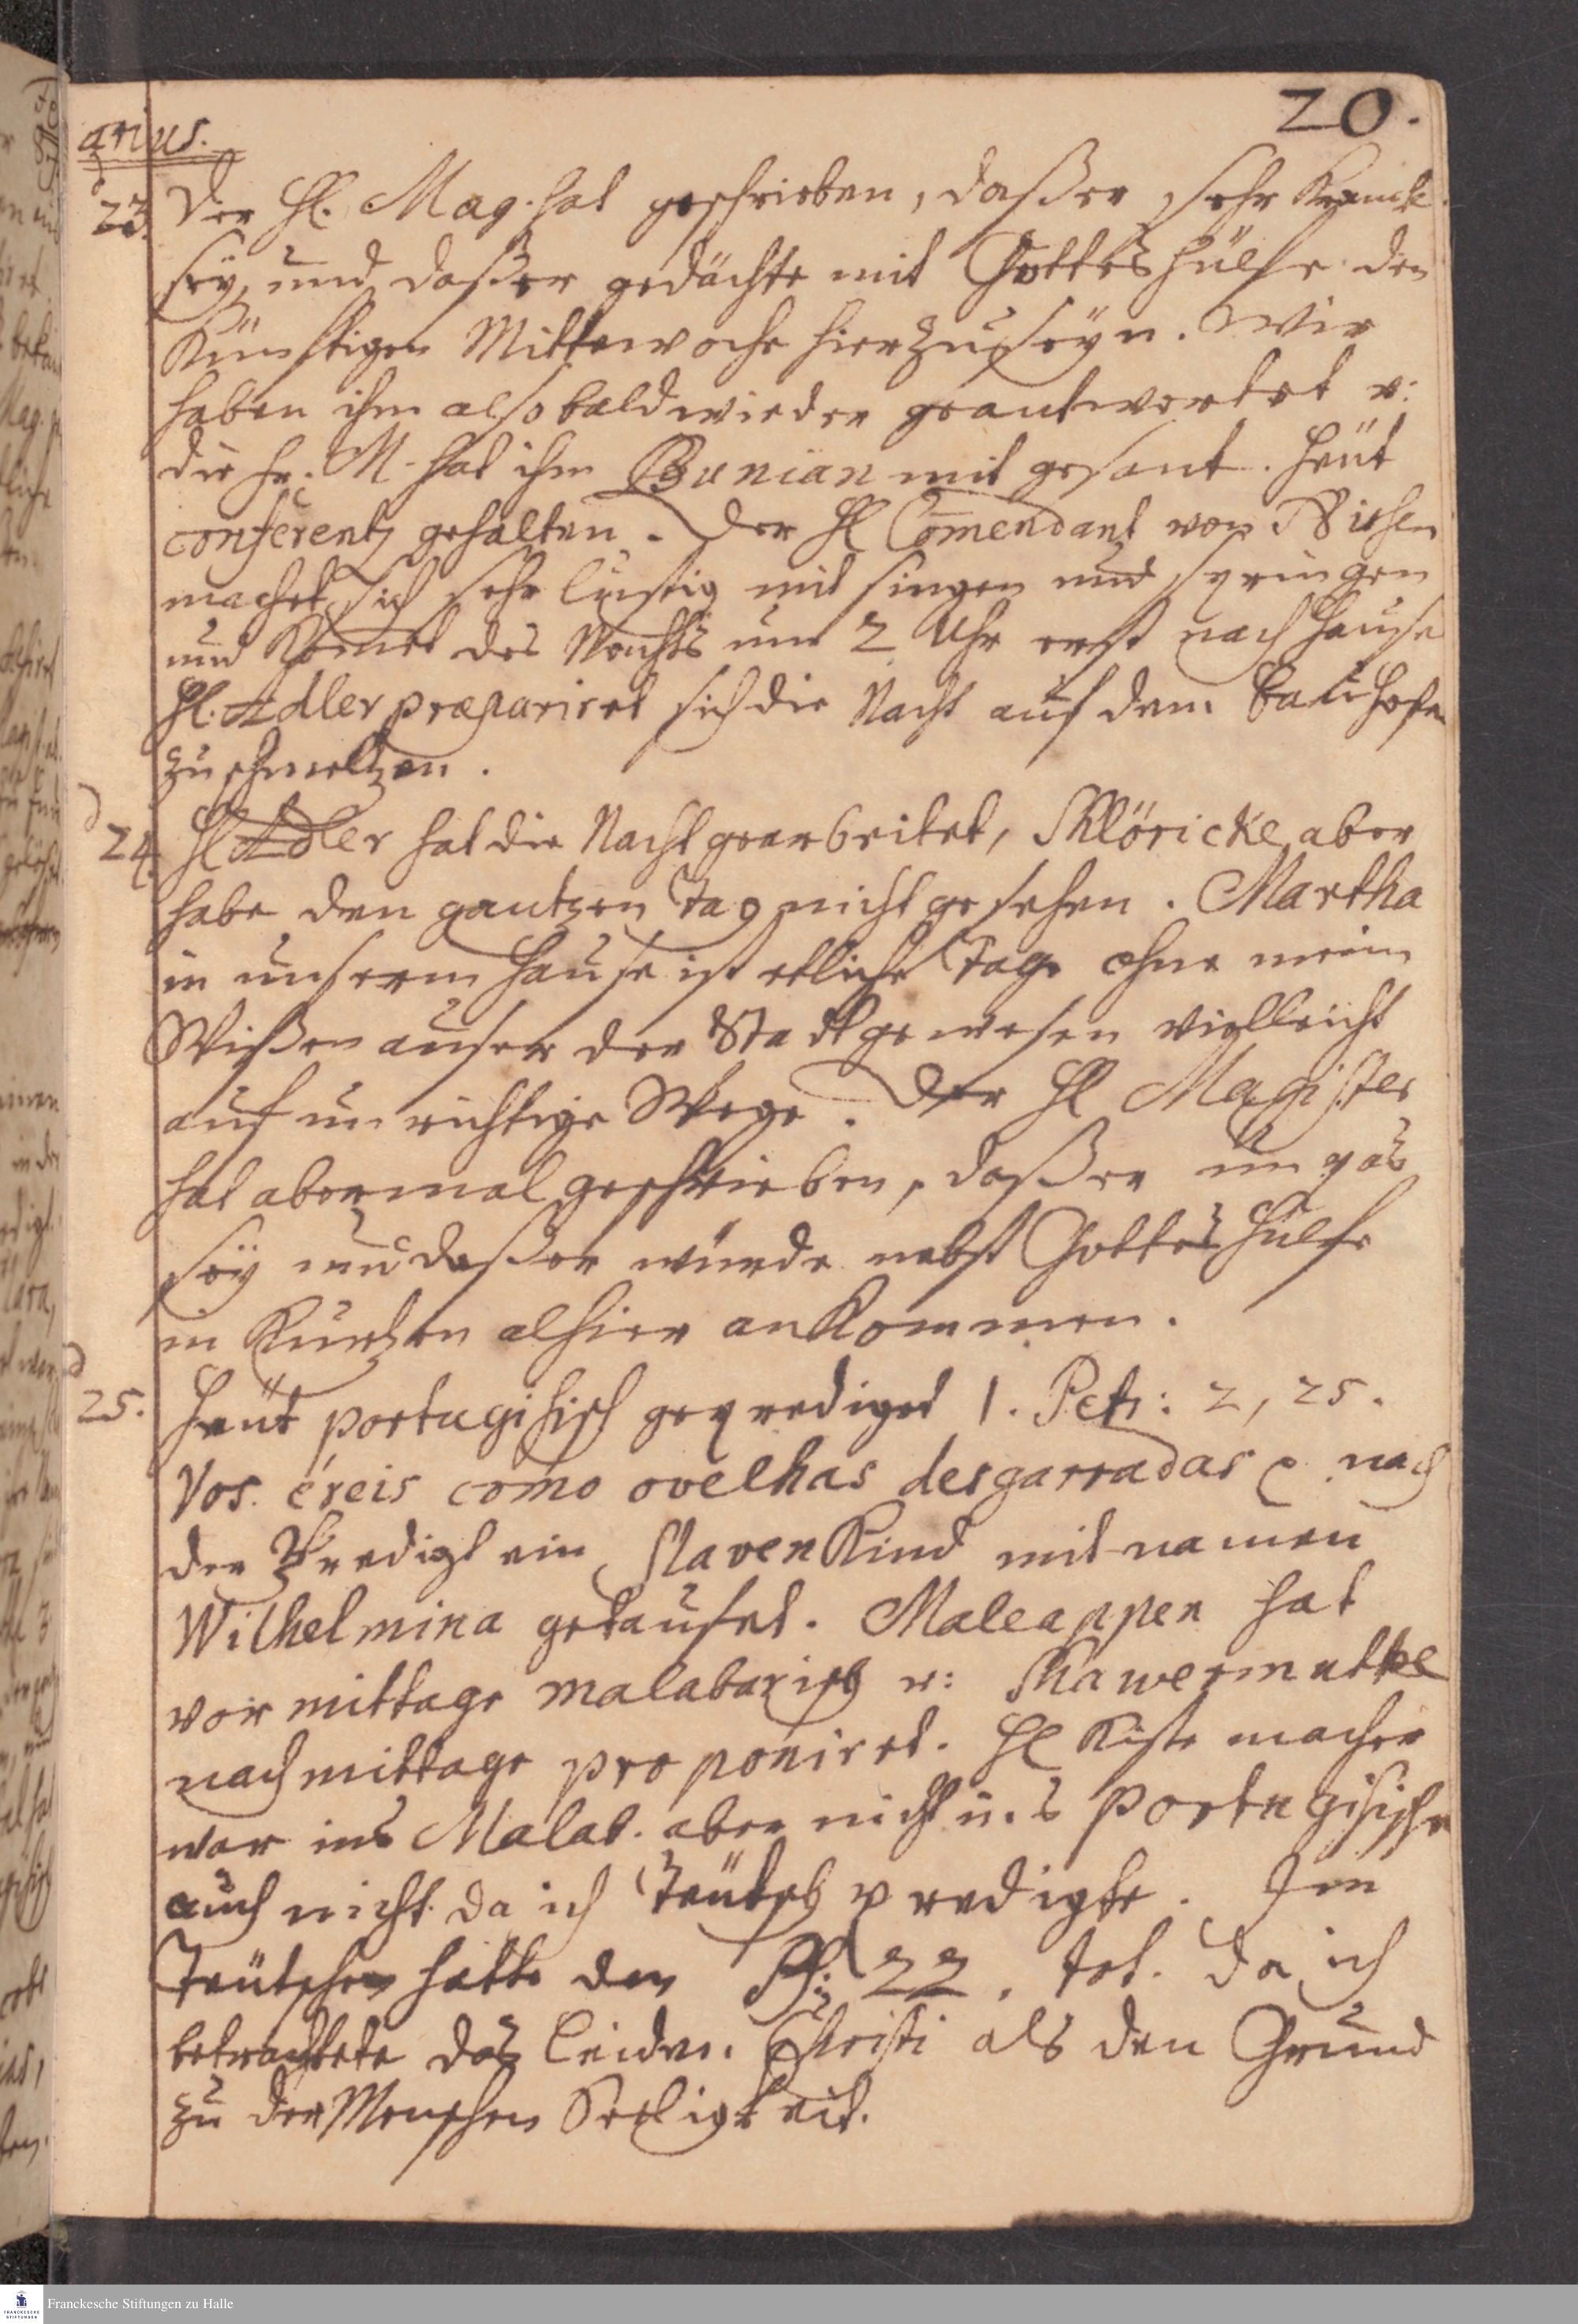 20.
arius.
23. Der Hl. Mag. hat geschrieben, daß er sehr Kranck
seÿ, und daß er gedächte mit Gottes hülfe den
Künftigen Mittewoche hier zu seÿn. Wir
haben ihm also bald wieder geantwortet u:
die Fr. M. hat ihm Bunian mit gesant. Heüt
conferentz gehalten. Der Hl Comendant von
machet sich sehr lustig mit singen und springen
und Komet des Nachts um 2 Uhr erst nach Hause
Hl. Adler præpariret sich die Nacht auf dem Bauhofe
zu schmeltzen.
24. Hl Adler hat die Nacht gearbeitet, Schlöricke aber
habe den gantzen Tag nicht gesehen. Martha
in unserm Hause ist etliche Tage ohne mein
Wißen auser der Stadt gewesen vielleicht
auf unrichtige Wege. Der Hl Magister
hat abermal geschrieben, daß er unpas
seÿ und daß er würde nebst Gottes Hülfe
in Kurtzen alhier anKommen.
25. Heüt portugisisch geprediget 1. Petr: 2, 25.
Vos éreis como ovelhas desgarradas e nach
der Predigt ein SlavenKind mit namen
Wilhelmina getaufet. Maleappen hat
vormittage malabarisch u: Schawerimutte
nachmittage proponiret. Hl Kistemacher
war ins Malab. aber nicht ins Portugisische
auch nicht da ich Teütsch predigte. Im
Teütschen hatte den Ps: 22. tot. da ich
betrachtete das Leiden Christi als den Grund
zu der Menschen Seeligkeit.
Franckesche Stiftungen zu Halle